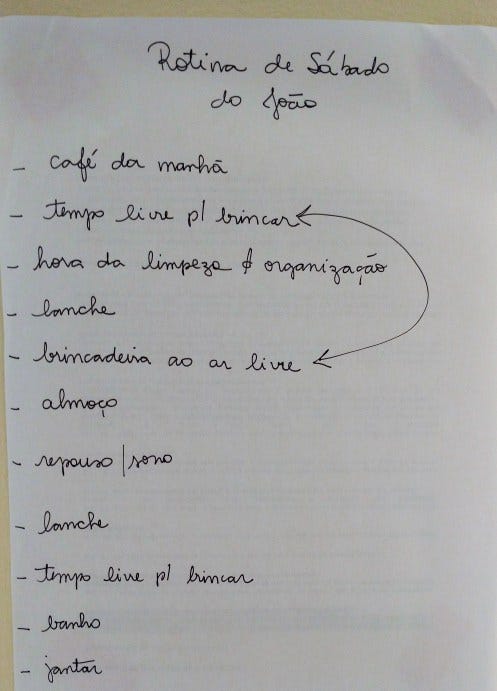 Rotina de Sábado
do João
- café da manhã
- tempo livre p/ brincar
- hora da limpeza & organização
- lanche
- brincadeira ao ar livre
- almoço
- repouso/sono
- lanche
- tempo live p/ brincar
- banho
- jantar